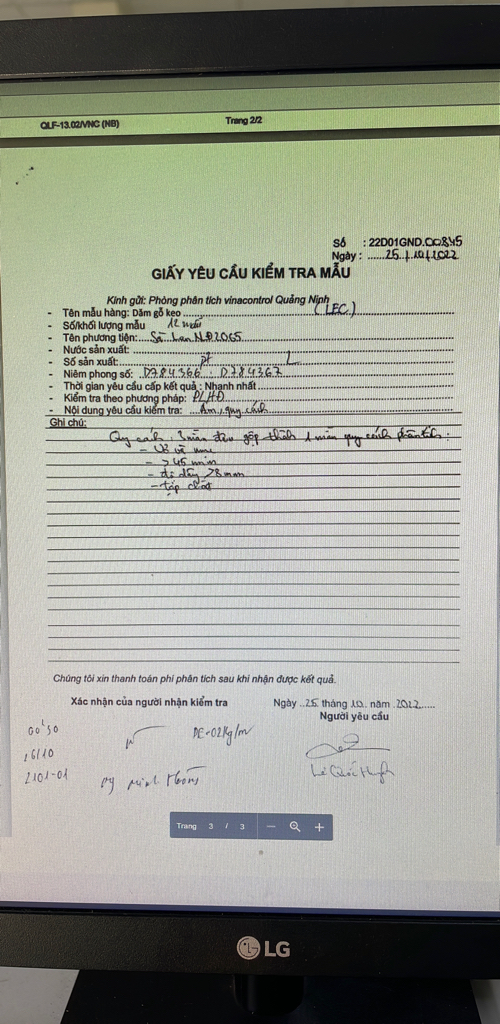 QLF-13.02/VNC (NB) Trang 2/2
Số : 22D01GND.00845
Ngày : ......25./.10/.2022
GIẤY YÊU CẦU KIỂM TRA MẪU
Kính gửi: Phòng phân tích vinacontrol Quảng Ninh
(LEC)
- Tên mẫu hàng: Dăm gỗ keo
- Số/khối lượng mẫu 12 mẫu
- Tên phương tiện: Sà Lan NĐ2065
- Nước sản xuất:
- Số sản xuất:
- Niêm phong số: D784366 : D784367
- Thời gian yêu cầu cấp kết quả : Nhanh nhất
- Kiểm tra theo phương pháp: PLHĐ
- Nội dung yêu cầu kiểm tra: Ẩm, quy cách
Ghi chú:
Quy cách : 3 mẫu gộp thành 1 mẫu quy cách phân tích :
- Vỏ và
- > 45 mm
- độ dày >8mm
- tạp chất
Chúng tôi xin thanh toán phí phân tích sau khi nhận được kết quả.
Xác nhận của người nhận kiểm tra
Ngày ..25. tháng .10.. năm .2022.....
Người yêu cầu
16/10
2101-01
Trang 3 / 3 − +
LG